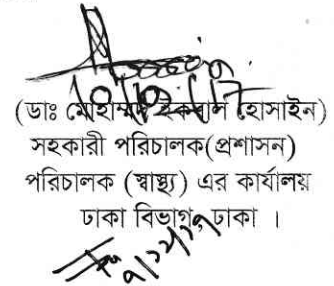 (ডাঃ মোহাম্মদ ইকবাল হোসাইন)
সহকারী পরিচালক(প্রশাসন)
পরিচালক (স্বাস্থ্য) এর কার্যালয়
ঢাকা বিভাগ, ঢাকা ।